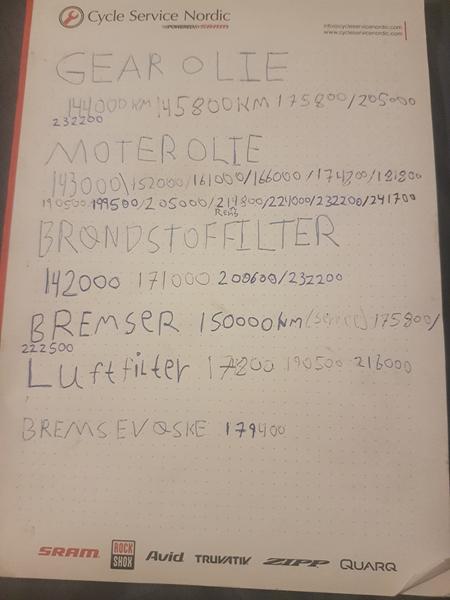 Cycle Service Nordic
POWERED BY SRAM
info@cycleservicenordic.com
www.cycleservicenordic.com
GEAR OLIE
144000 KM 145800KM 175800/205000
232200
MOTEROLIE
143000\152000/161000/166000/174200/181800
190500/199500/205000/214800/224000/232200/241700
BRØNDSTOFFILTER
142000 171000 200600/232200
BREMSER 150000KM (service) 175800/
222500
Luftfilter 17200 190500 216000
BREMSEVØSKE 179400
SRAM ROCK SHOX Avid TRUVATIV ZIPP QUARQ